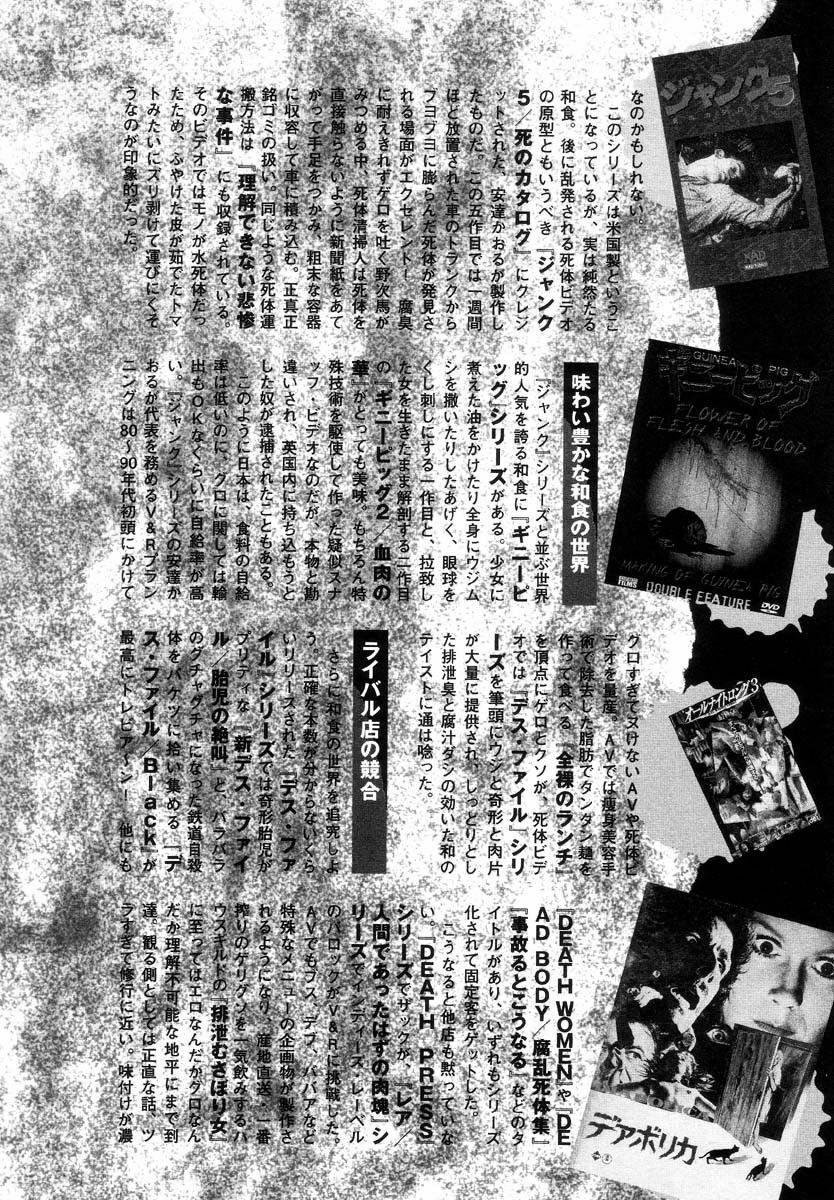 なのかもしれない。
　このシリーズは米国製というこ
とになっているが、実は純然たる
和食。後に乱発される死体ビデオ
の原型ともいうべき『ジャンク
5／死のカタログ』にクレジ
ットされた、安達かおるが製作し
たものだ。この五作目では一週間
ほど放置された車のトランクから
ブヨブヨに膨らんだ死体が発見さ
れる場面がエクセレント！　腐臭
に耐えきれずゲロを吐く野次馬が
みつめる中、死体清掃人は死体を
直接触らないように新聞紙をあて
がって手足をつかみ、粗末な容器
に収容して車に積み込む。正真正
銘ゴミの扱い。同じような死体運
搬方法は『理解できない悲惨
な事件』にも収録されている。
そのビデオではモノが水死体だっ
たため、ふやけた皮が茹でたトマ
トみたいにズリ剥けて運びにくそ
うなのが印象的だった。
味わい豊かな和食の世界
　『ジャンク』シリーズと並ぶ世界
的人気を誇る和食に『ギニーピ
ッグ』シリーズがある。少女に
煮えた油をかけたり全身にウジム
シを撒いたりしたあげく、眼球を
くし刺しにする一作目と、拉致し
た女を生きたまま解剖する二作目
の『ギニーピッグ2／血肉の
華』がとっても美味。もちろん特
殊技術を駆使して作った疑似スナ
ッフ・ビデオなのだが、本物と勘
違いされ、英国内に持ち込もうと
した奴が逮捕されたこともある。
　このように日本は、食料の自給
率は低いのに、グロに関しては輪
出もOKなくらいに自給率が高
い。『ジャンク』シリーズの安達か
おるが代表を務めるV&Rプラン
ニングは80〜90年代初頭にかけて
グロすぎてヌけないAVや死体ビ
デオを量産。AVでは痩身美容手
術で除去した脂肪でタンタン麺を
作って食べる『全裸のランチ』
を頂点にゲロとクソが、死体ビデ
オでは『デス・ファイル』シリ
ーズを筆頭にウジと奇形と肉片
が大量に提供され、しっとりとし
た排泄臭と腐汁ダシの効いた和の
テイストに通は唸った。
ライバル店の競合
　さらに和食の世界を追究しよ
う。正確な本数が分からないくら
いリリースされた『デス・ファ
イル』シリーズでは奇形胎児が
プリティな『新デス・ファイ
ル／胎児の絶叫』と、バラバラ
のグチャグチャになった鉄道自殺
体をバケツに拾い集める『デ
ス・ファイル／Black』が
最高にトレビア〜ン！　他にも
『DEATH WOMEN』や『DE
AD BODY／腐乱死体集』
『事故るとこうなる』などのタ
イトルがあり、いずれもシリーズ
化されて固定客をゲットした。
　こうなると他店も黙っていな
い。『DEATH PRESS』
シリーズでザックが、『レア／
人間であったはずの肉塊』シ
リーズでインディーズ・レーベル
のバロックがV&Rに挑戦した。
AVでもブス、デブ、ババアなど
特殊なメニューの企画物が製作さ
れるようになり、産地直送・一番
搾りのゲリグソを一気飲みするハ
ウスギルドの『排泄むさぼり女』
に至ってはエロなんだかグロなん
だか理解不可能な地平にまで到
達。観る側としては正直な話、ツ
ラすぎて修行に近い。味付けが濃
ジャンク5
GUINEA PIG
ギニーピッグ
FLOWER OF
FLESH AND BLOOD
MAKING OF GUINEA PIG
DOUBLE FEATURE
DVD
オールナイトロング3
デアボリカ